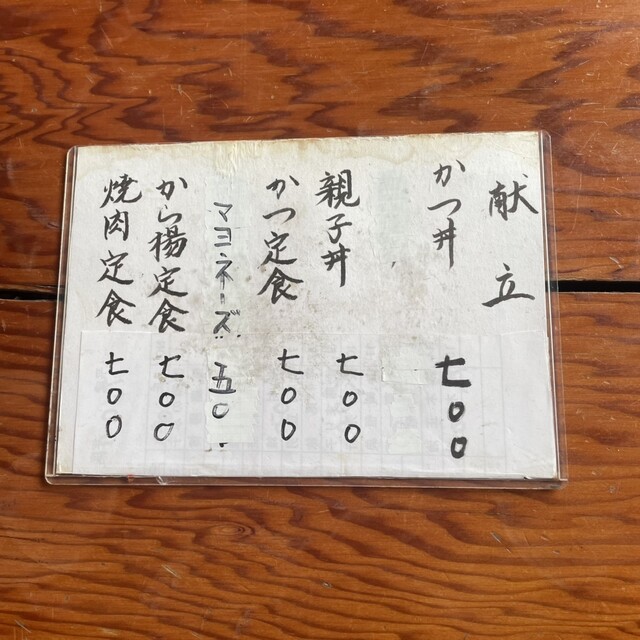 献立
かつ丼 七〇〇
親子丼 七〇〇
かつ定食 七〇〇
マヨネーズ 五〇
から揚定食 七〇〇
焼肉定食 七〇〇